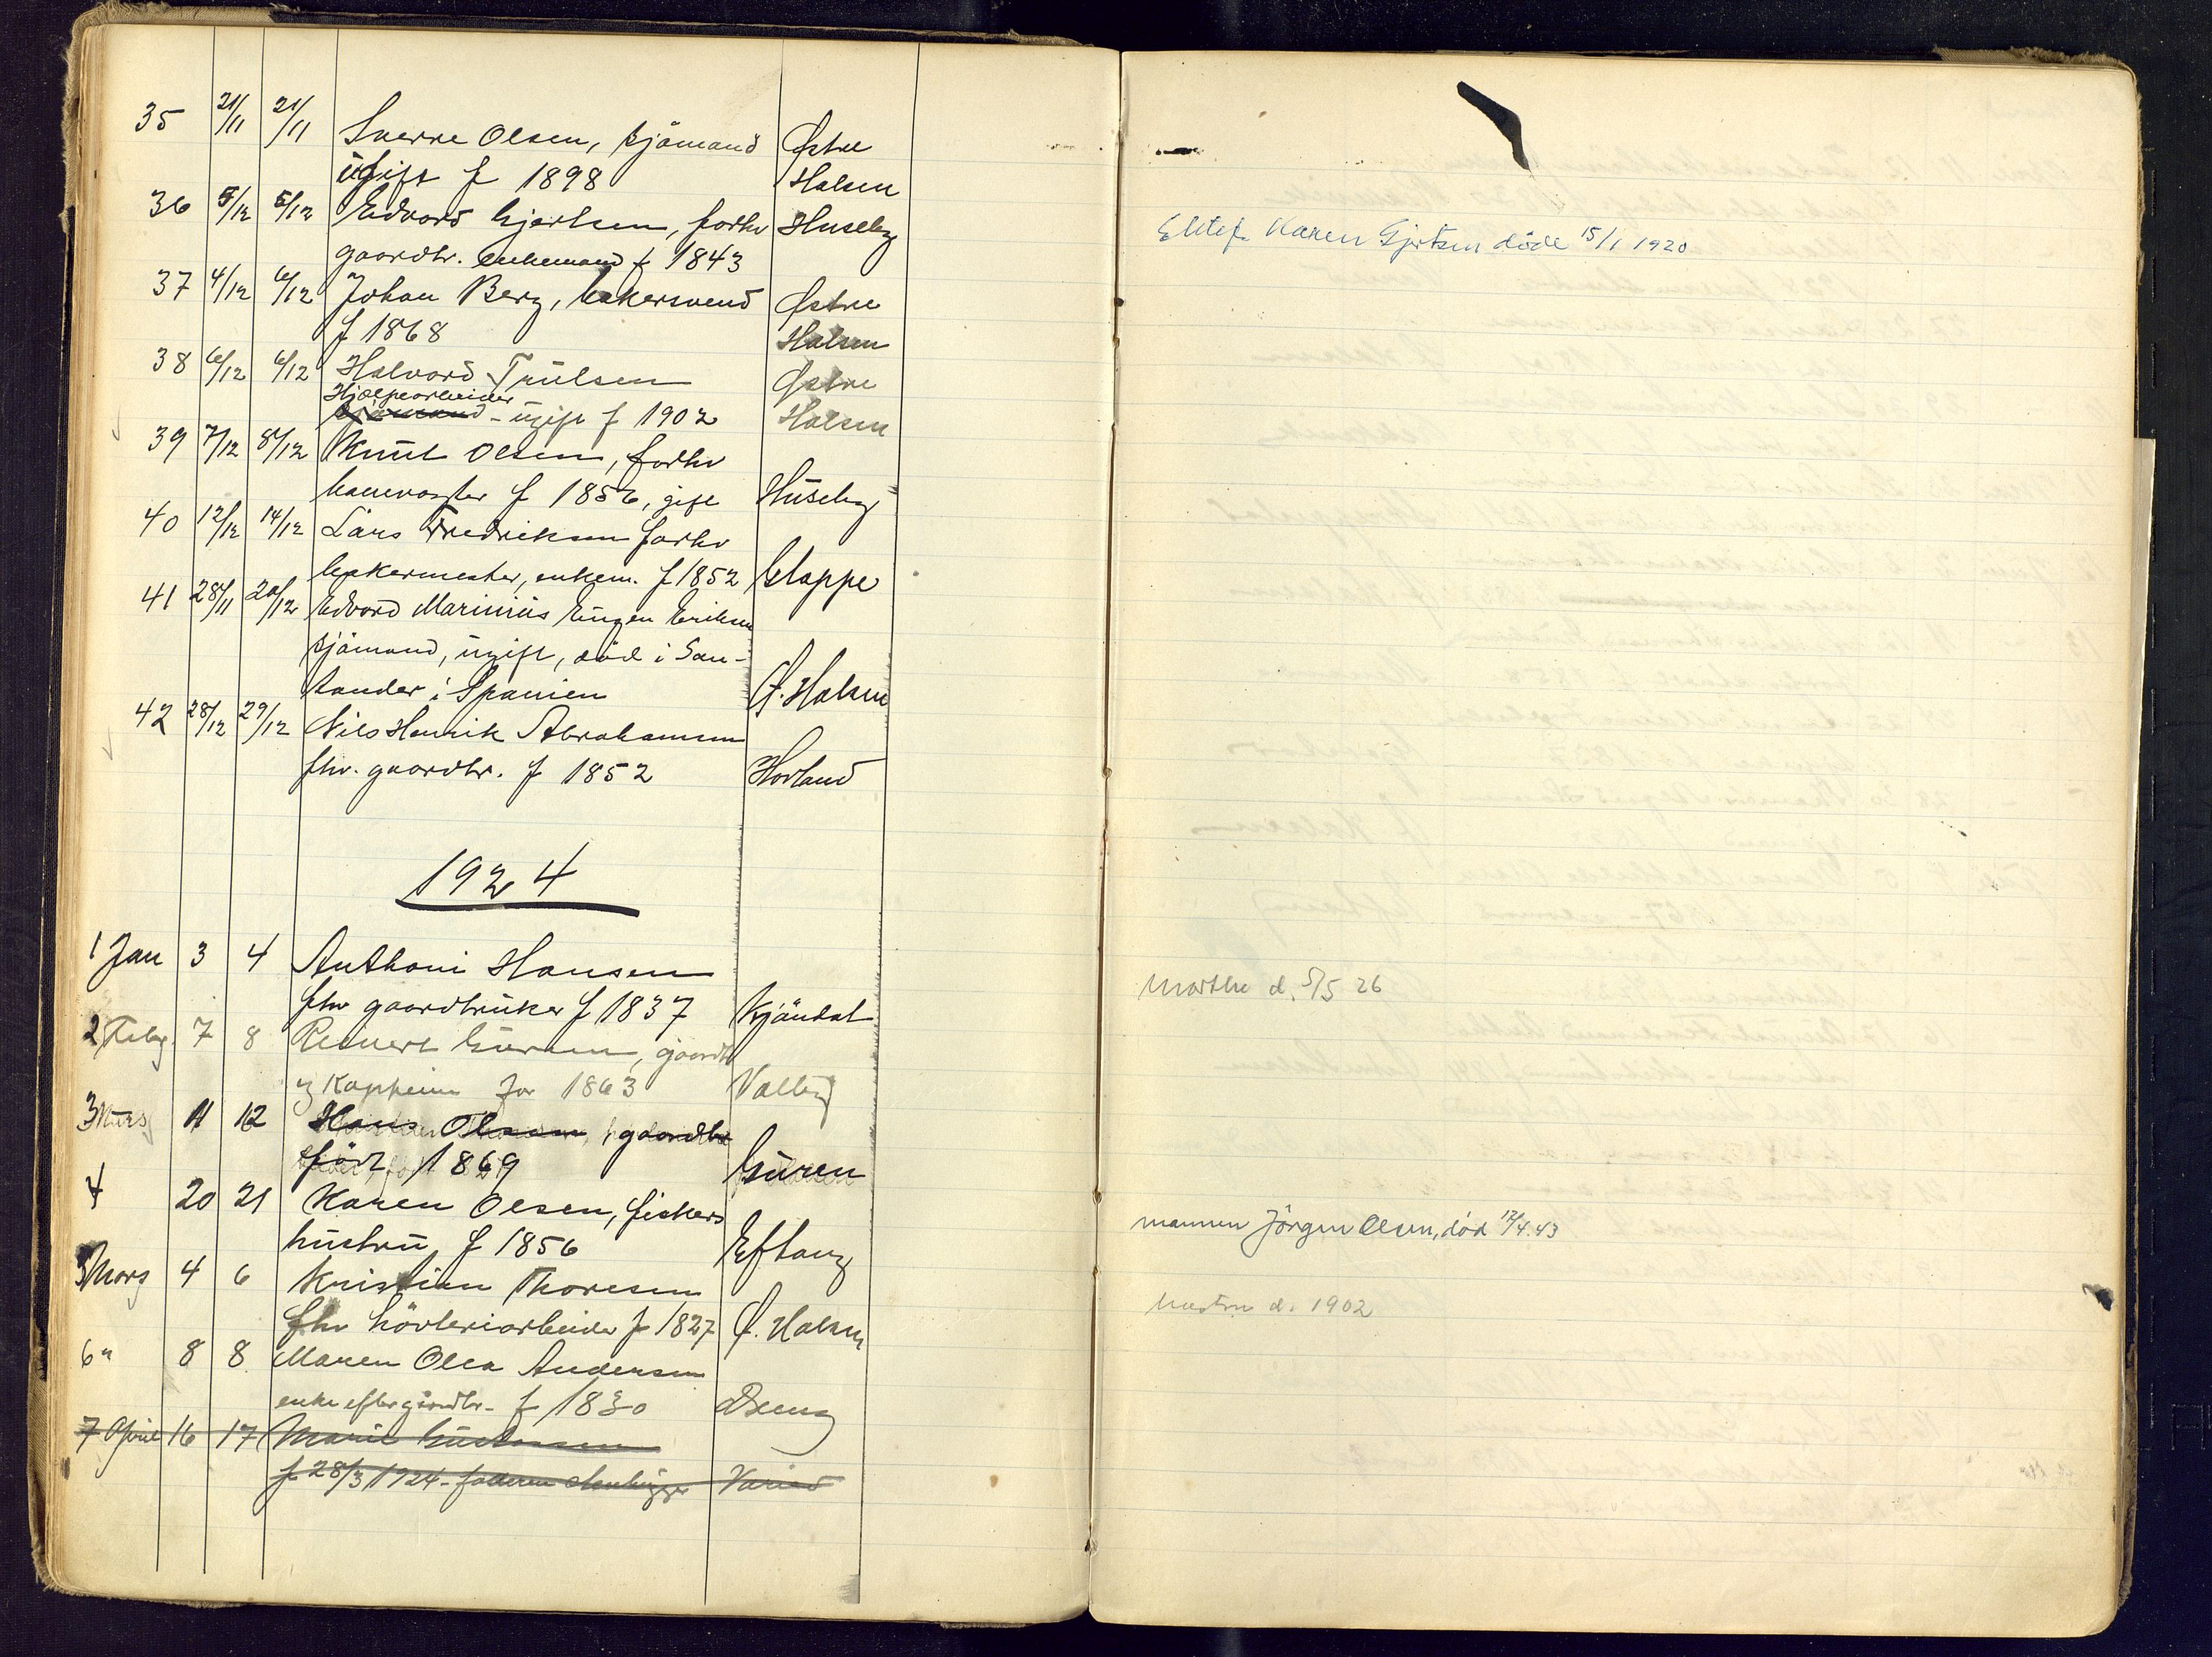 35 21/11 21/11 Sverre Olsen, sjömand Østre
ugift f 1898 Halsen
36 5/12 5/12 Edvard Gjertsen, forhv Huseby
gaardbr. enkemand f 1843
37 4/12 6/12 Johan Berg, bakersvend Østre
f 1868 Halsen
38 6/12 6/12 Halvard Trulsen Østre
Hjælpearbeider
sjömand - ugift f 1902 Halsen
39 7/12 8/12 Knut Olsen, forhv
banevogter f 1856, gift Huseby
40 12/12 14/12 Lars Fredriksen forhv
bakermester, enkem. f 1852 Gloppe
41 28/11 20/12 Edvard Marinius Eugen Eriksen
sjömand, ugift, död i San-
tander i Spanien Ø. Halsen
42 28/12 29/12 Nils Henrik Abrahamsen
fhv. gaardbr. f 1852 Hovland
1924
1 Jan 3 4 Anthoni Hansen
fhv gaardbruker f 1837 Kjöndal
2 Febr. 7 8 Reinert Gurnsen, gaardb
og Kapt 1863 Valby
3 Mars 11 12 Hans Olsen, gaardbr
född 1869 Guren
4 20 21 Karen Olsen, fiskers
hustru f 1856 Eftang
5 Mars 4 6 Kristian Thoresen
fhv hövleriarbeider f 1827 Ø. Halsen
6 " 8 8 Maren Olea Andersen
enke efter gårdbr. f 1830
7 April 16 17 Marie
f 28/3 1924 - faderen
Ektef. Karen Gjertsen döde 15/1 1920
Marthe d. 5/5 26
mannen Jörgen Olsen, död 12/4.43
hustru d. 1902